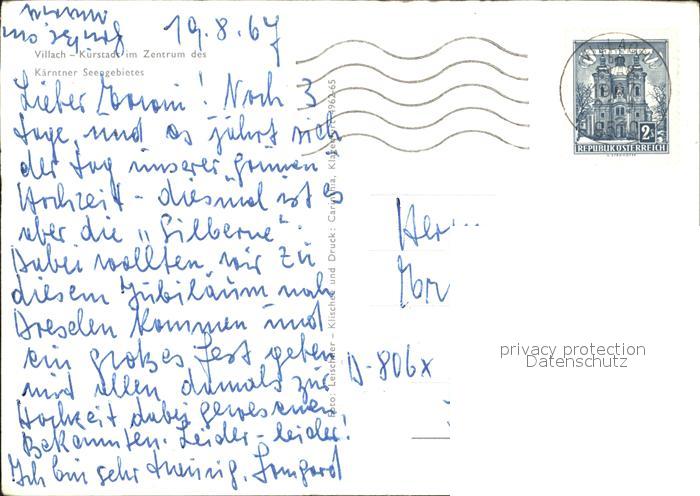 19.8.67
Villach – Kurstadt im Zentrum des
Kärntner Seengebietes
Lieber ! Noch 3
Tage, und es jährt sich
der Tag unserer "grünen"
Hochzeit - diesmal ist es
aber die "Silberne".
Dabei wollten wir zu
diesem Jubiläum nach
Dresden kommen und
ein großes Fest geben
mit allen damals zur
Hochzeit dabei gewesenen
Bekannten. Leider - leider!
Ich bin sehr traurig. Irmgard
Foto: Leischner – Klischee und Druck: Carinthia, Klagenfurt 1962-65
2S
REPUBLIK ÖSTERREICH
Her
D-806x
privacy protection
Datenschutz